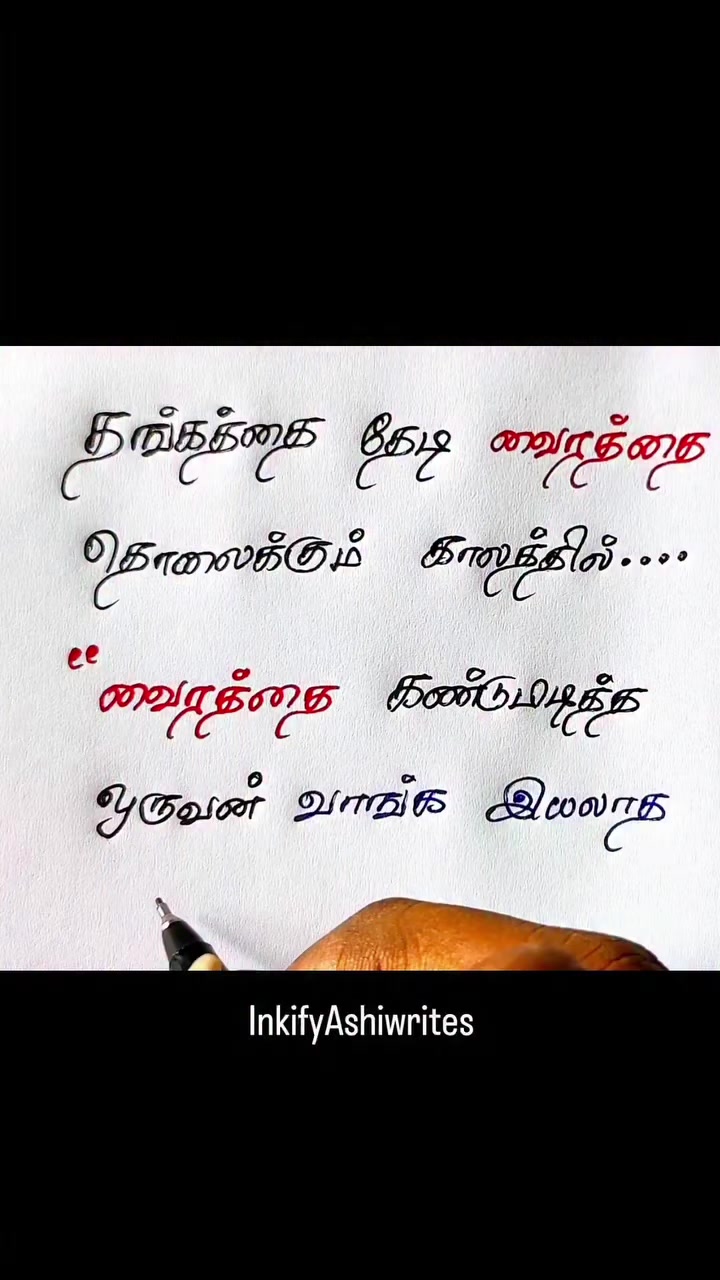 தங்கத்தை தேடி வைரத்தை
தொலைக்கும் காலத்தில்....
“வைரத்தை கண்டுபிடித்த
ஒருவன் வாங்க இயலாத
InkifyAshiwrites